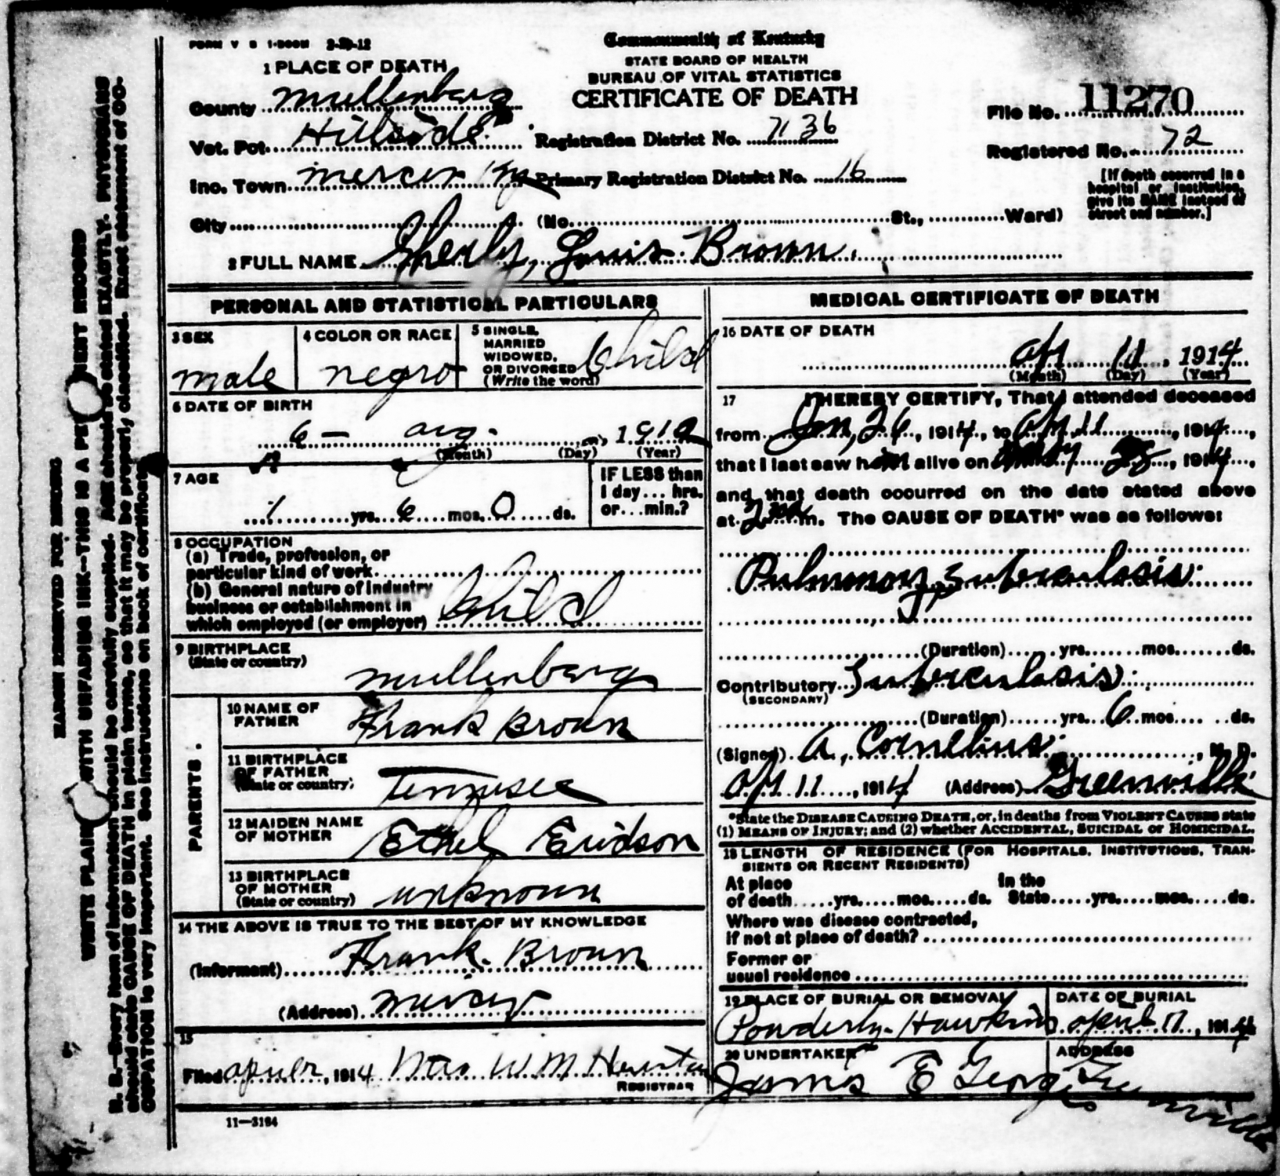 FORM V S 1-500M 2-20-12
Commonwealth of Kentucky
STATE BOARD OF HEALTH
BUREAU OF VITAL STATISTICS
CERTIFICATE OF DEATH
1 PLACE OF DEATH
County Mullenburg
Vot. Pct. Hillside Registration District No. 7136
Ino. Town Mercer Ky Primary Registration District No. 16
City (No. St., Ward)
File No. 11270
Registered No. 72
[If death occurred in a
hospital or institution,
give its NAME instead of
street and number.]
2 FULL NAME Sherly, Louis Brown.
PERSONAL AND STATISTICAL PARTICULARS
3 SEX
male
4 COLOR OR RACE
negro
5 SINGLE,
MARRIED
WIDOWED,
OR DIVORCED
(Write the word)
Child
6 DATE OF BIRTH
6 – aug. , 1912
(Month) (Day) (Year)
7 AGE
1 yrs. 6 mos. 0 ds.
IF LESS than
1 day... hrs.
or... min.?
8 OCCUPATION
(a) Trade, profession, or
particular kind of work
(b) General nature of industry
business or establishment in
which employed (or employer) Child
9 BIRTHPLACE
(State or country)
mullenburg
PARENTS.
10 NAME OF
FATHER
Frank Brown
11 BIRTHPLACE
OF FATHER
(State or country)
Tennusee
12 MAIDEN NAME
OF MOTHER
Ethel Eridson
13 BIRTHPLACE
OF MOTHER
(State or country)
unknown
14 THE ABOVE IS TRUE TO THE BEST OF MY KNOWLEDGE
(Informant) Frank. Brown
(Address) mercer
15
Filed , 1914 Mrs W M
REGISTRAR
11—3184
MEDICAL CERTIFICATE OF DEATH
16 DATE OF DEATH
Apr 11, 1914
(Month) (Day) (Year)
17 I HEREBY CERTIFY, That I attended deceased
from Jan, 26, 1914, to Apr 11, 1914,
that I last saw him alive on , 1914,
and that death occurred on the date stated above
at m. The CAUSE OF DEATH* was as follows:
Pulmonary Tuberculosis
(Duration) yrs. mos. ds.
Contributory Tuberculosis
(SECONDARY)
(Duration) yrs. 6 mos. ds.
(Signed) A, Cornelius , M. D.
Apr 11, 1914 (Address) Greenville
*State the DISEASE CAUSING DEATH, or, in deaths from VIOLENT CAUSES state
(1) MEANS OF INJURY; and (2) whether ACCIDENTAL, SUICIDAL or HOMICIDAL.
18 LENGTH OF RESIDENCE (FOR HOSPITALS, INSTITUTIONS, TRAN-
SIENTS OR RECENT RESIDENTS)
At place In the
of death yrs. mos. ds. State yrs. mos. ds.
Where was disease contracted,
if not at place of death?
Former or
usual residence
19 PLACE OF BURIAL OR REMOVAL
Powderly. Hawkins
DATE OF BURIAL
april 11, 1914
20 UNDERTAKER
James E George
ADDRESS
Greenville
MARGIN RESERVED FOR BINDING
WRITE PLAINLY WITH UNFADING INK—THIS IS A PERMANENT RECORD
N. B.—Every item of information should be carefully supplied. AGE should be stated EXACTLY. PHYSICIANS
should state CAUSE OF DEATH in plain terms, so that it may be properly classified. Exact statement of OC-
CUPATION is very important. See instructions on back of certificate.